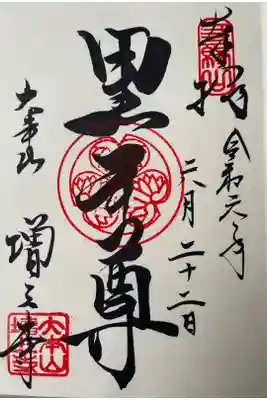 奉拝
令和六年
六月二十二日
黒本尊
大本山
増上寺
大本山
増上寺